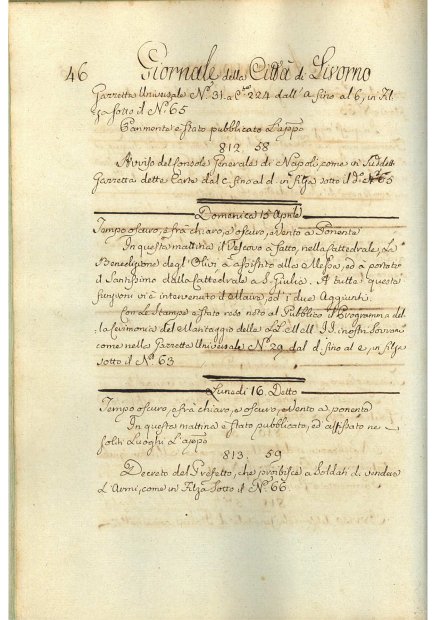 46 Giornale della Città di Livorno
Gazzetta Universale N.º 31. a C. 224 dall' a sino al b, in Fil-
za sotto il N.º 65
è stato pubblicato L'app.º
812. 58
Avviso del Console Generale di Napoli, come in Sud.
Gazzetta dette Carte dal c. sino al d. in filza sotto il d.º N.º 65
Domenica 15 Aprile
Tempo oscuro, e frà chiaro, e oscuro, e vento a Ponente
In questa mattina il Vescovo à fatto, nella Cattedrale, La
Benedizione degl' Olivi à assistito alla Messa, ed à portato
il Santissimo dalla Cattedrale a S. Giulia. A tutte queste
funzioni vi è intervenuto il Maire, ed i due Aggiunti.
Con le Stampe è stato reso noto al Pubblico il Programma del-
la Cerimonia del Maritaggio delle LL. MM. II. i nostri Sovrani
come nella Gazzetta Universale N.º 29 dal d. sino al e, in filza
sotto il N.º 63
Lunedì 16. Detto
Tempo oscuro, e frà chiaro, e oscuro, e vento a ponente
In questa mattina è stato pubblicato, ed affissato ne
soliti Luoghi L'app.º
813. 59
Decreto del Prefetto, che proibisce a Soldati di vendere
L'Armi, come in Filza Sotto il N.º 66.